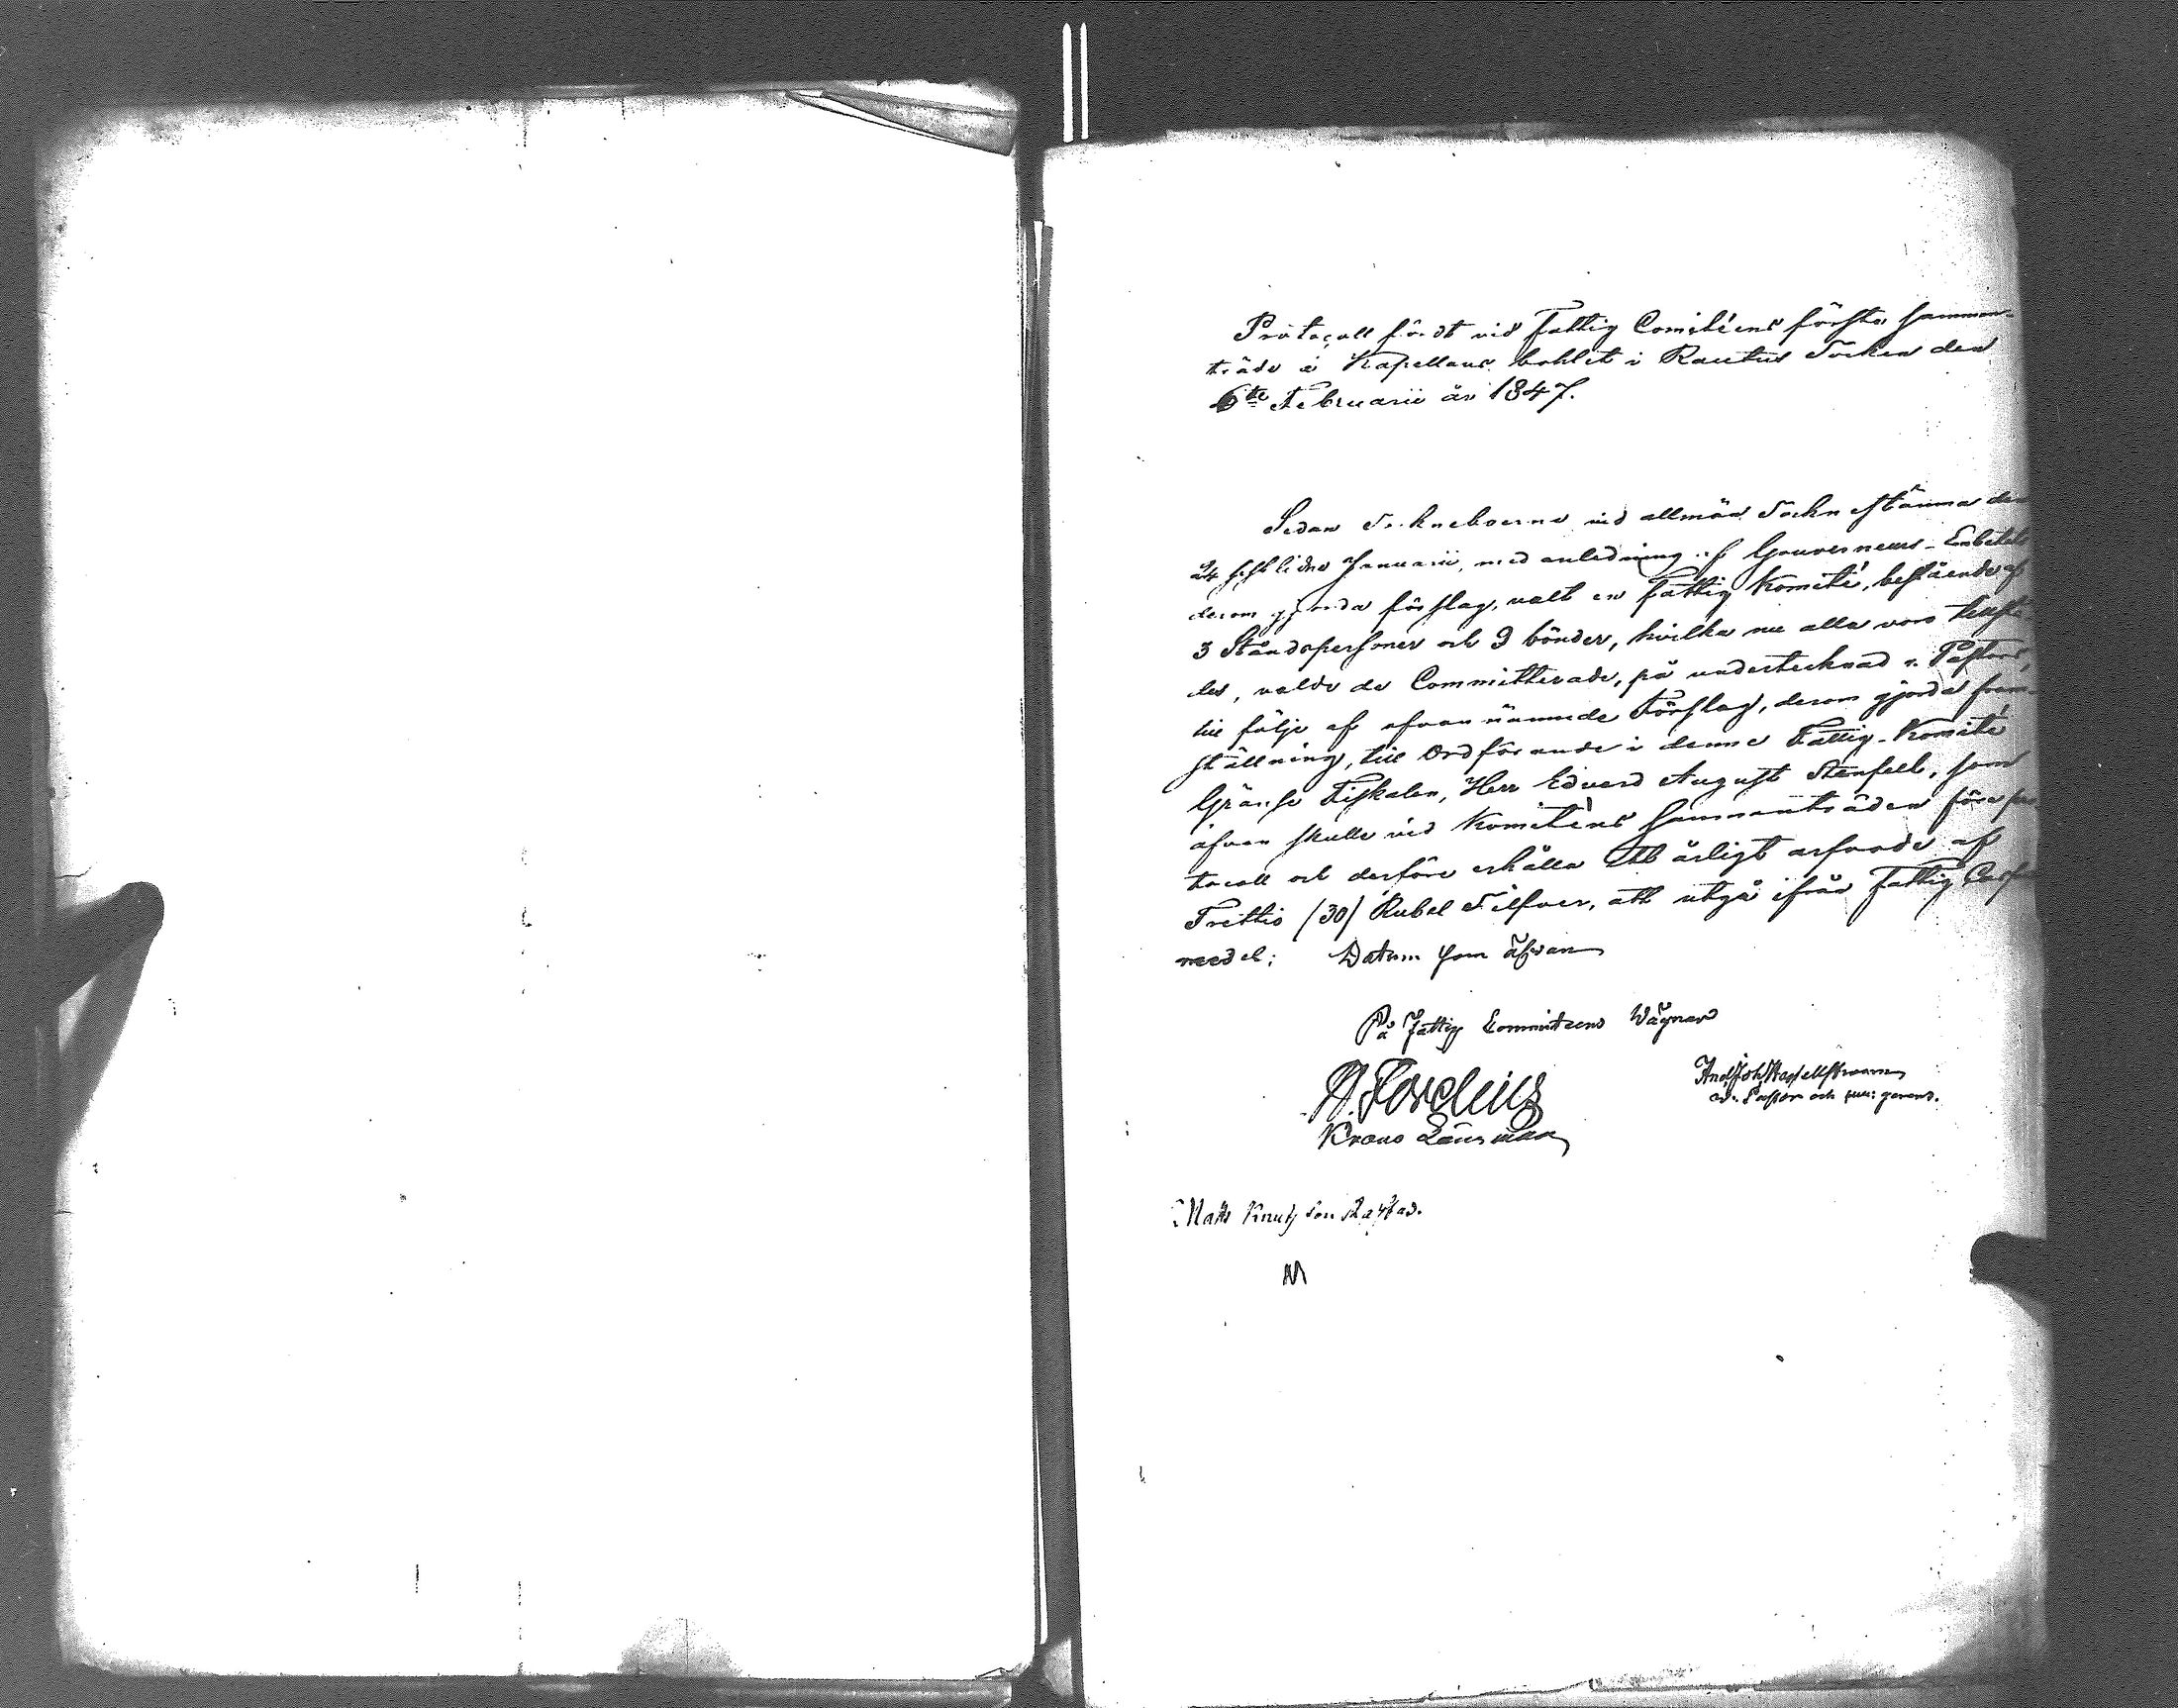 Protocoll fördt vid Fattig Comitéens första samman-
träde å Kapellans bohlet i Rautus Socken den
6te Februarii år 1847.
Sedan Sockneboerne vid allmän Sockne stämma den
24 sistlidne Januarii, med anledning af Gouverneurs-Embetets
derom gjorda förslag, valt en Fattig Komité, bestående af
3 Ståndspersoner och 9 bönder, hvilka nu alla voro tillstä-
des, valde de Committerade, på undertecknad v. Pastors,
till följe af ofvannämnde Förslag, derom gjorda fram-
ställning, till Ordförande i denne Fattig-Komité
Gräns Fiskalen, Herr Edvard August Stenfelt, som
äfven skulle vid Komiténs sammanträden föra pro-
tocoll och derföre erhålla ett årligt arfvode af
Trettio (30) Rubel Silfver, att utgå ifrån Fattig Cassa
medel; Datum som åfvan
På Fattig Committeens Vägnar
Krono Länsman
And. Joh. Hasselstroem
v. Pastor och
Matts Knutsson
M